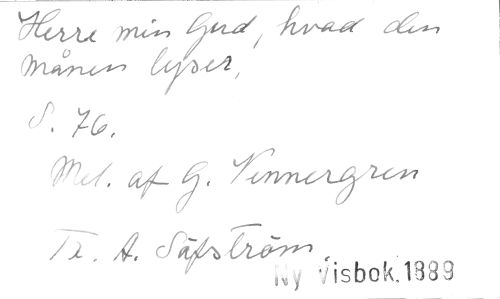 Herre min Gud, hvad den
månen lyser,
S. 76.
Mel. af G. Vennergren
Tr. A. Säfström.
Ny Visbok. 1889